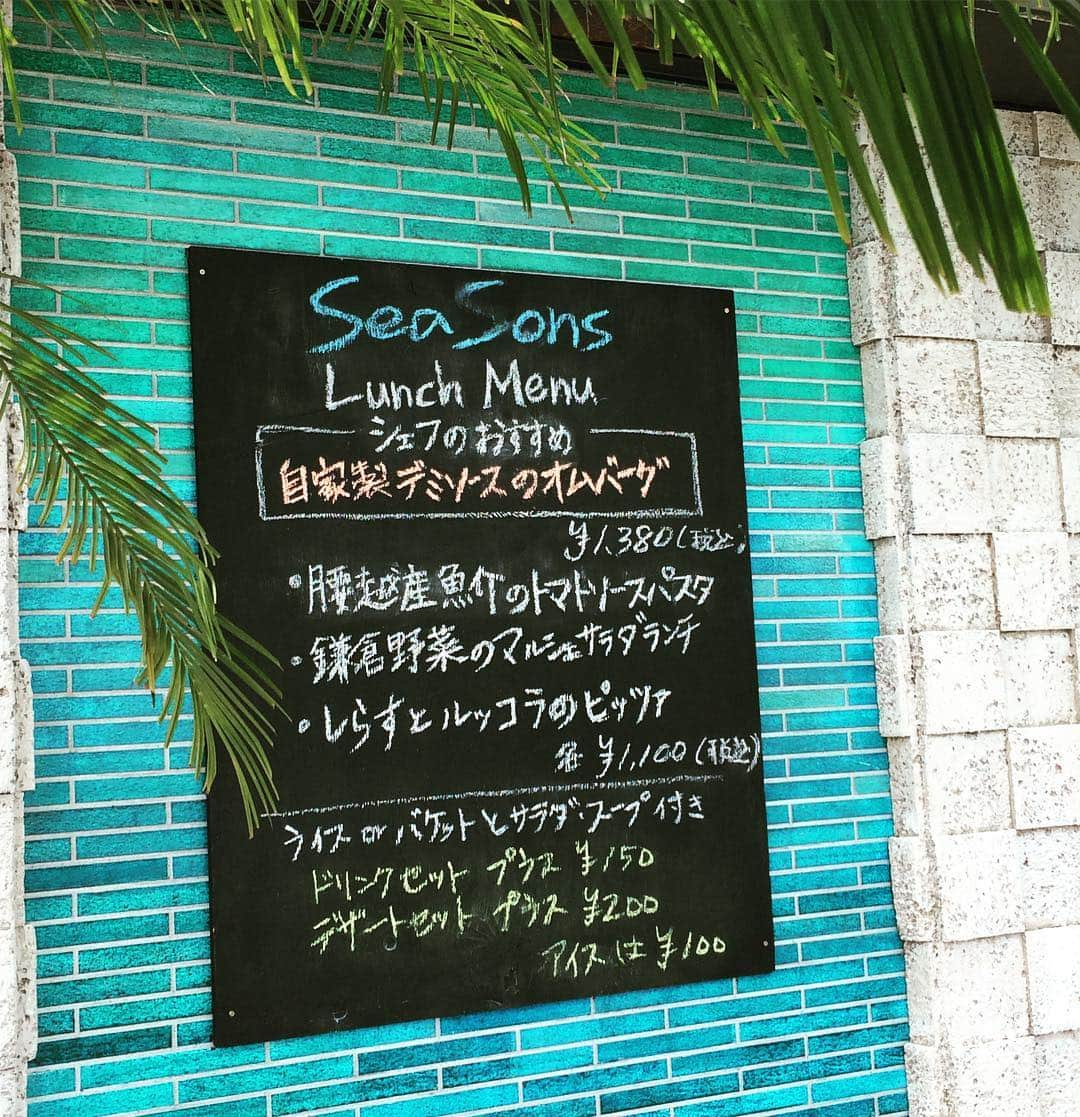 SeaSons
Lunch Menu
シェフのおすすめ
自家製デミソースのオムバーグ
¥1,380(税込)
・腰越産魚介のトマトソースパスタ
・鎌倉野菜のマルシェサラダランチ
・しらすとルッコラのピッツァ
各 ¥1,100(税込)
ライス or バケットとサラダ・スープ付き
ドリンクセット プラス ¥150
デザートセット プラス ¥200
アイスは ¥100